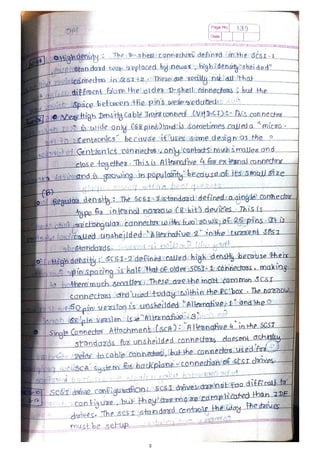 Page No. 135
Date
High density: The D-shell connectors defined in the SCSI-1
standard were replaced by newer, high density "shielded"
connectors in SCSI-2. These are really not all that
different from the older D-shell connectors; but the
space between the pins were reduced.
Very High Density Cable Interconnect (VHDCI): This connector
is wide only (68 pins) and is sometimes called a "micro-
centronics" because it uses some design as the
Centronics connector, only contacts much smaller and
close together. This is Alternative 4 for external connector
and is growing in popularity because of its small size
(B)
Regular density: The SCSI-1 standard defined a single connector
type for internal narrow (8-bit) devices. This is
rectangular connector with two rows of 25 pins. It is
called unshielded "Alternative 2" in the current SPI
standards.
High density: SCSI-2 defined called high density because their
pin spacing is half that of older SCSI-1 connectors, making
them much smaller. These are the most common SCSI
connectors and used today within the PC box. The narrow
50 pin version is unshielded "Alternative; 1" and the
68 pin version is "Alternative: 3".
Single Connector Attachment (SCA): "Alternative 4" in the SCSI
standards for unshielded connectors doesn't actually
refer to cable connectors, but the connectors used for
SCA system for backplane-connection of SCSI drives.
SCSI drive configuration: SCSI drives are not too difficult to
configure, but they are more complicated than IDE
drives. The SCSI standard controls the way the drives
must be setup.